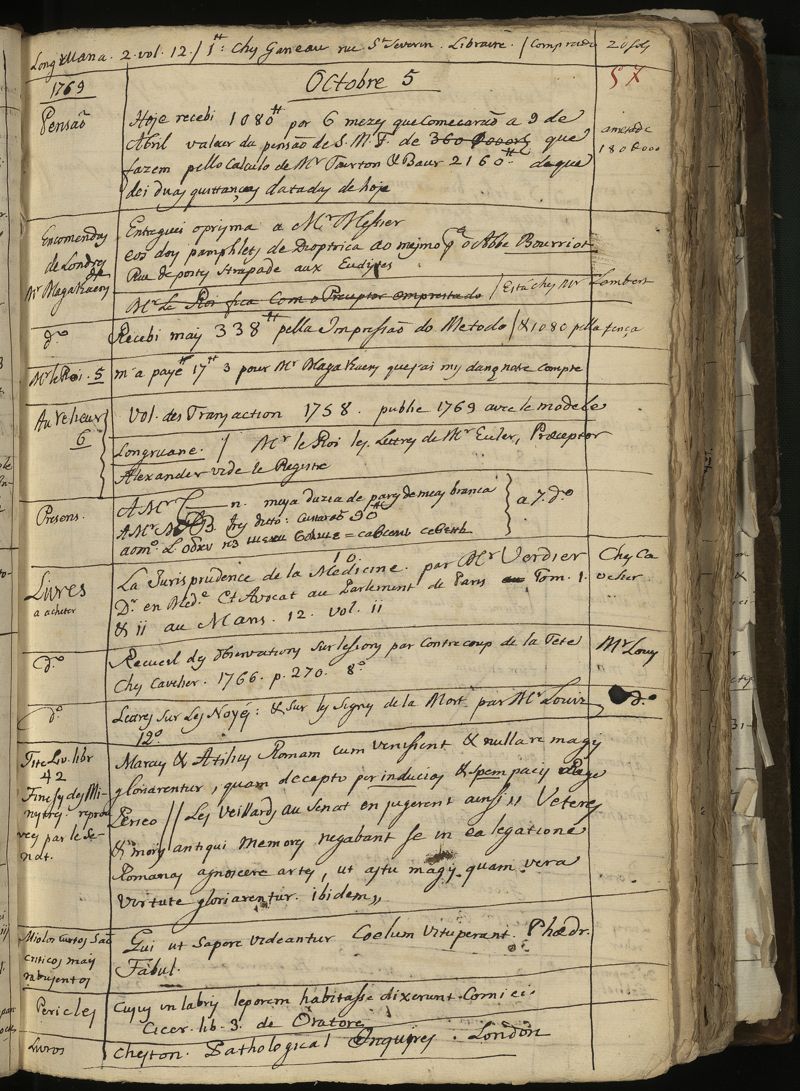 Longruana. 2. vol. 12. / 1tt: Chez Ganeau rue St Severin. Libraire. / Comprado 20 sols
1769 Octobre 5 57
Pensaõ Hoje recebi 1080tt por 6 mezes que comecaraõ a 9 de
Abril valeur da pensaõ de S. M. F. de 360 000 que
fazem pello Calculo de Mr Tourton & Baur 2160tt de que
dei duas quittanças datadas de hoje
180 000
Encomendas Entreguei o prisma a Mr Messier
de Londres eos doys pamphlets de Dioptrica ao mesmo pa o Abbe Bourriot
de Rue de postes Strapade aux Eudistes
Mr Magalhaens Mr Le Roi fica Com o Preceptor emprestado / Está chez Mr Lambert
do Recebi mais 338tt pella Impressaõ do Metodo / & 1080 pella
Mr le Roi. 5 m'a payé 17tt 3 pour Mr Magalhaens que j'ai mis dans notre compte
Au Relieur Vol. des Transaction 1758. publié 1769 avec le modele
6 Longruane. / Mr le Roi les Lettres de Mr Euler, Præceptor
Alexander vide le Registre
Presens. A Mr n. meya duzia de pares de meas branca
A Mr B. tres ditto: Custaraõ 90tt
a 7. do
10.
Livres La Jurisprudence de la Médicine. par Mr Verdier Chez Ca
a acheter Dr en Mede Et Avocat au Parlement de Paris Tom. 1. velier
& ii au Mans. 12. vol. ii
do Recueil des observations sur lesions par Contrecoup de la Tete Mr Louis
Chez Cavelier. 1766. p. 270. 8o
do Lettres sur Les Noyés: & sur les signes de la Mort par Mr Louis do
12o
Tite Liv. libr Marcus & Atilius Romam cum venissent & nulla re magis
42 gloriarentur, quam decepto per inducias & spem pacis Rege
Finesse des Mi- Perseo // Les Veillards au Senat en jugerent ainsi " Veteres
nistres. repro & moris antiqui memores negabant se in ea legatione
vées par le Se- Romanas agnoscere artes, ut astu magis quam vera
nat. virtute gloriarentur. ibidem "
Miolos Curtos Saõ Qui ut sapere videantur Coelum vituperant. Phædr.
criticos mais Fabul.
rabujentos
Pericles Cuius in labris leporem habitasse dixerunt Comici.
Cicer. lib. 3. de Oratore
Livros Cheston. Pathological Inquires. London